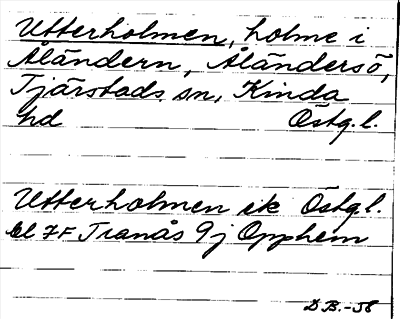 Utterholmen, holme i
Åländern, Åländersö,
Tjärstads sn, Kinda
hd Östg.l.
Utterholmen ek Östg.l.
bl 7F Tranås 9j Opphem
D.B.-58